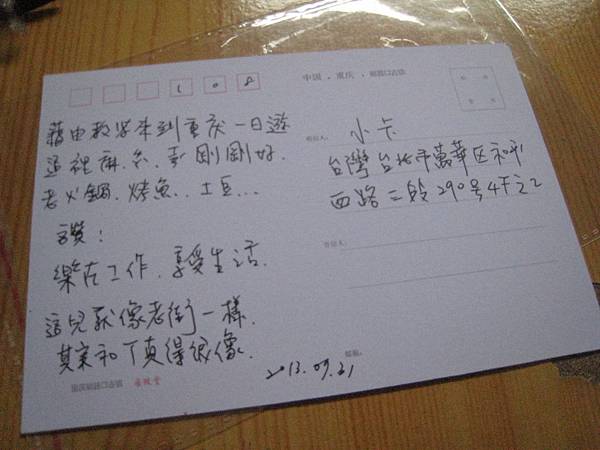 108
藉由教學來到重庆一日遊
這裡麻、辣剛剛好.
老火鍋.烤魚..土豆...
讚!
樂在工作.享受生活.
這兒就像老街一樣.
其实和 真得很像.
重庆磁器口古镇
中国 . 重庆 . 磁器口古镇
收信人:
小卡
台灣台北市萬華区和平
西路三段290号4F之2
寄信人:
邮编:
2013.09.21